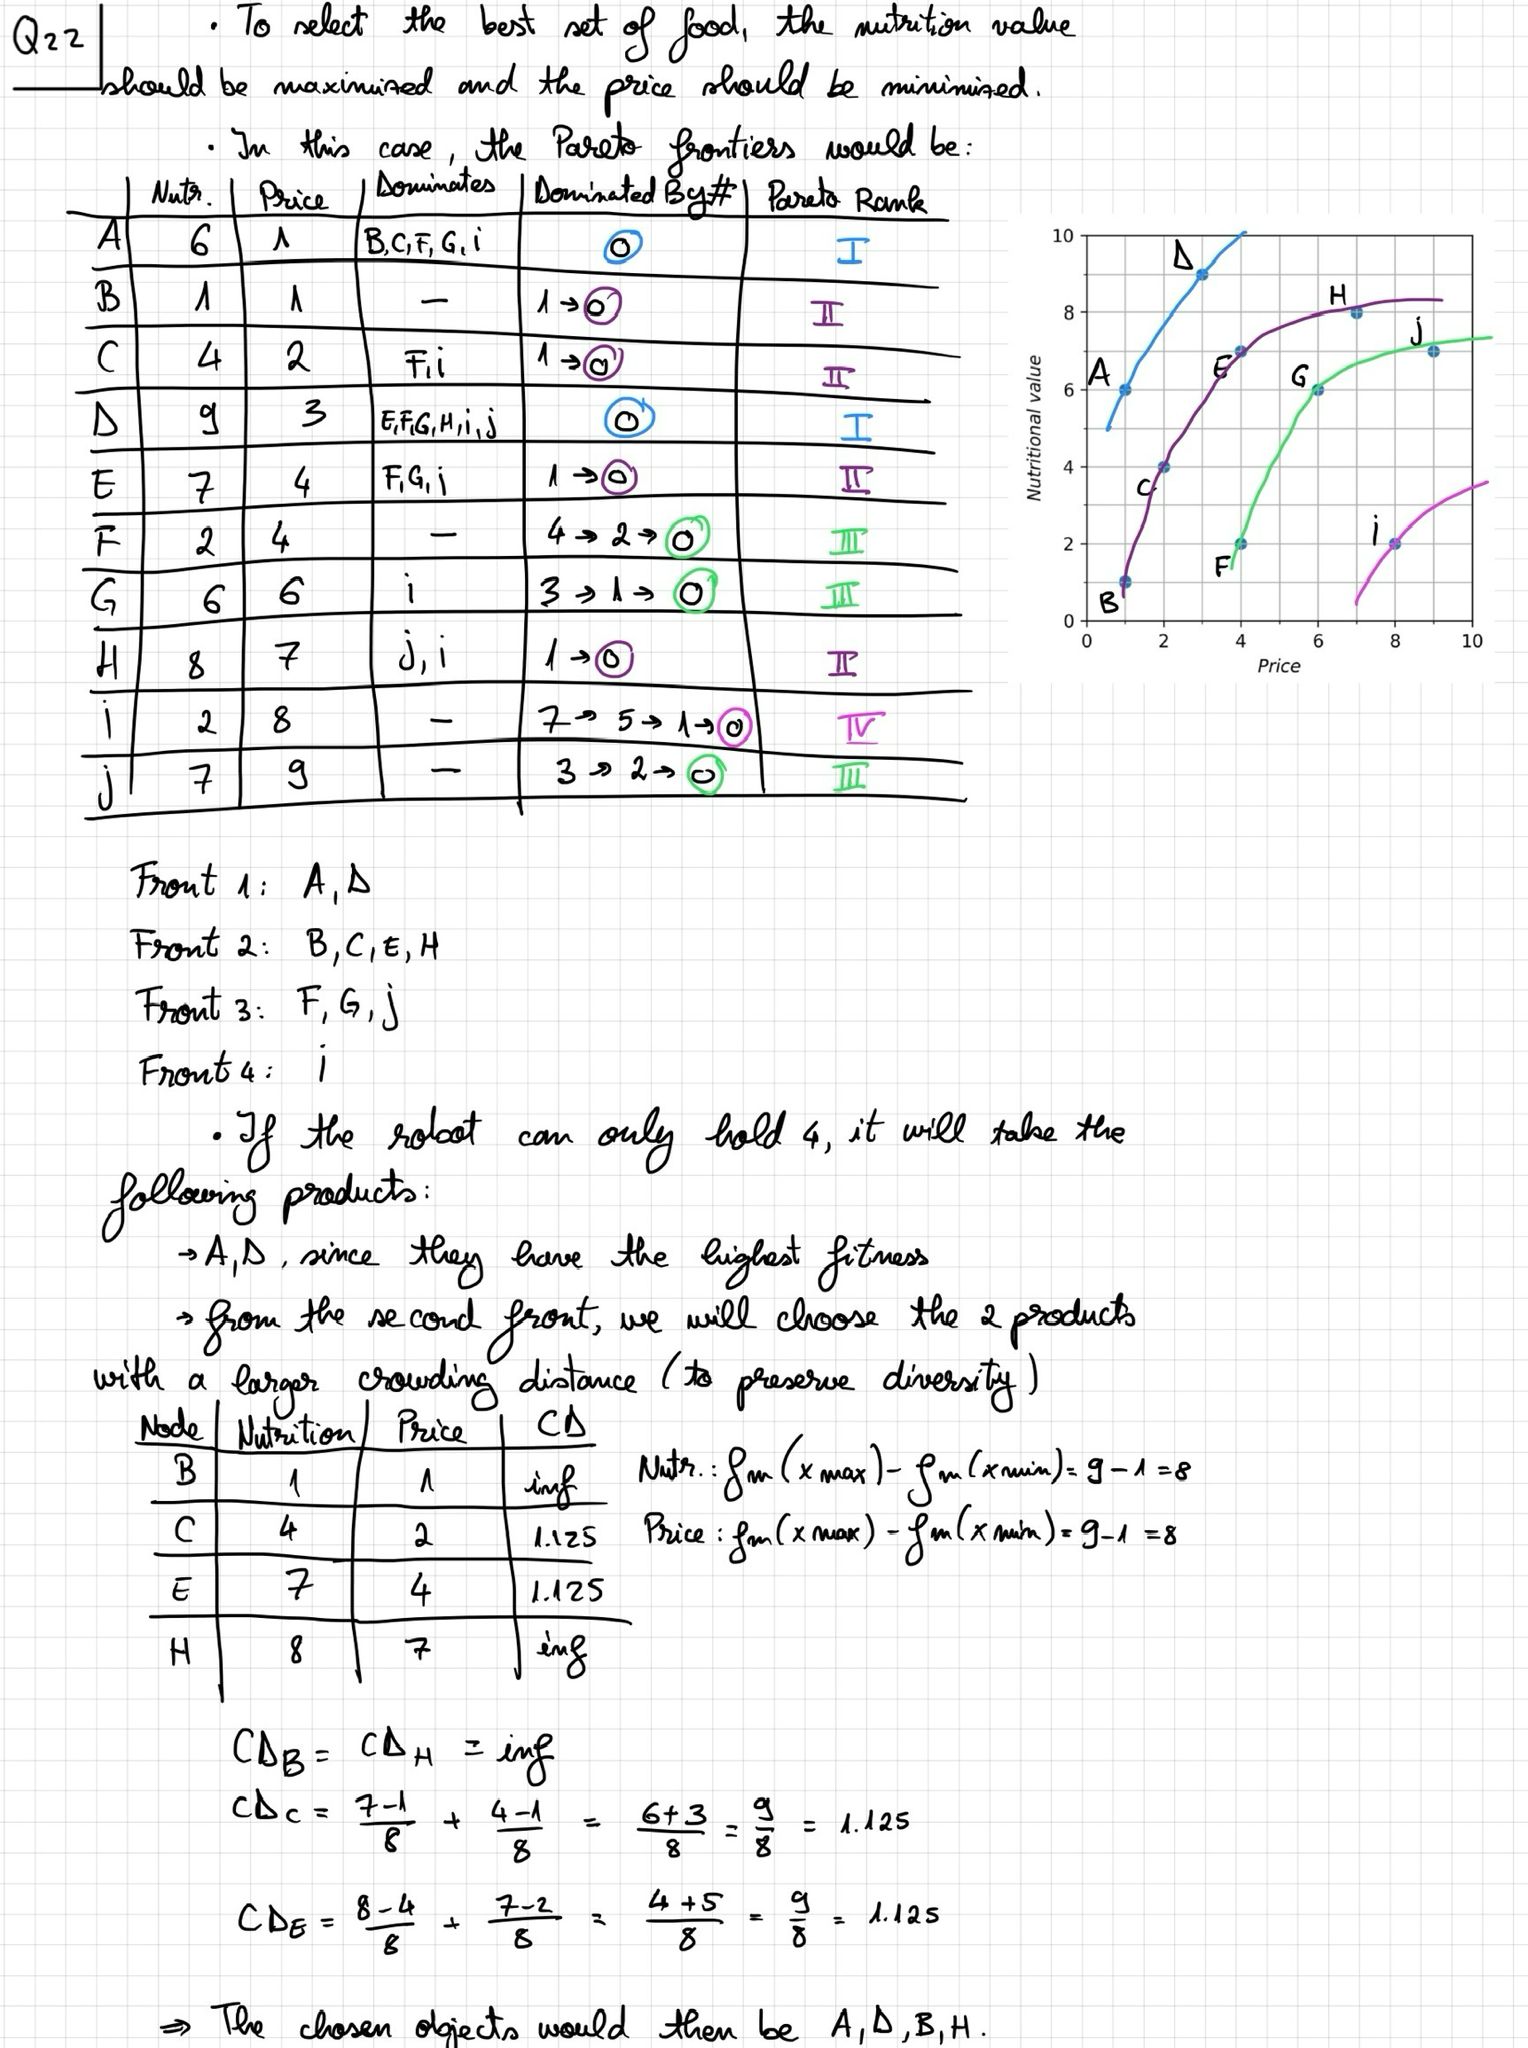 Q22
• To select the best set of food, the nutrition value
should be maximized and the price should be minimized.
• In this case, the Pareto frontiers would be:
Nutr. Price Dominates Dominated By# Pareto Rank
A 6 1 B,C,F,G,i 0 I
B 1 1 — 1→0 II
C 4 2 F,i 1→0 II
D 9 3 E,F,G,H,i,j 0 I
E 7 4 F,G,j 1→0 II
F 2 4 — 4→2→0 III
G 6 6 i 3→1→0 III
H 8 7 j,i 1→0 II
i 2 8 — 7→5→1→0 IV
j 7 9 — 3→2→0 III
10
8
6
4
2
0
Nutritional value
A
D
H
E
j
G
C
F
i
B
0 2 4 6 8 10
Price
Front 1: A, D
Front 2: B, C, E, H
Front 3: F, G, j
Front 4: i
• If the robot can only hold 4, it will take the
following products:
→ A, D, since they have the highest fitness
→ from the second front, we will choose the 2 products
with a larger crowding distance (to preserve diversity)
Node Nutrition Price CD
B 1 1 inf
C 4 2 1.125
E 7 4 1.125
H 8 7 inf
Nutr.: fm(x max) - fm(x min) = 9-1 = 8
Price: fm(x max) - fm(x min) = 9-1 = 8
CD_B = CD_H = inf
CD_C = 7-1/8 + 4-1/8 = 6+3/8 = 9/8 = 1.125
CD_E = 8-4/8 + 7-2/8 = 4+5/8 = 9/8 = 1.125
⇒ The chosen objects would then be A, D, B, H.